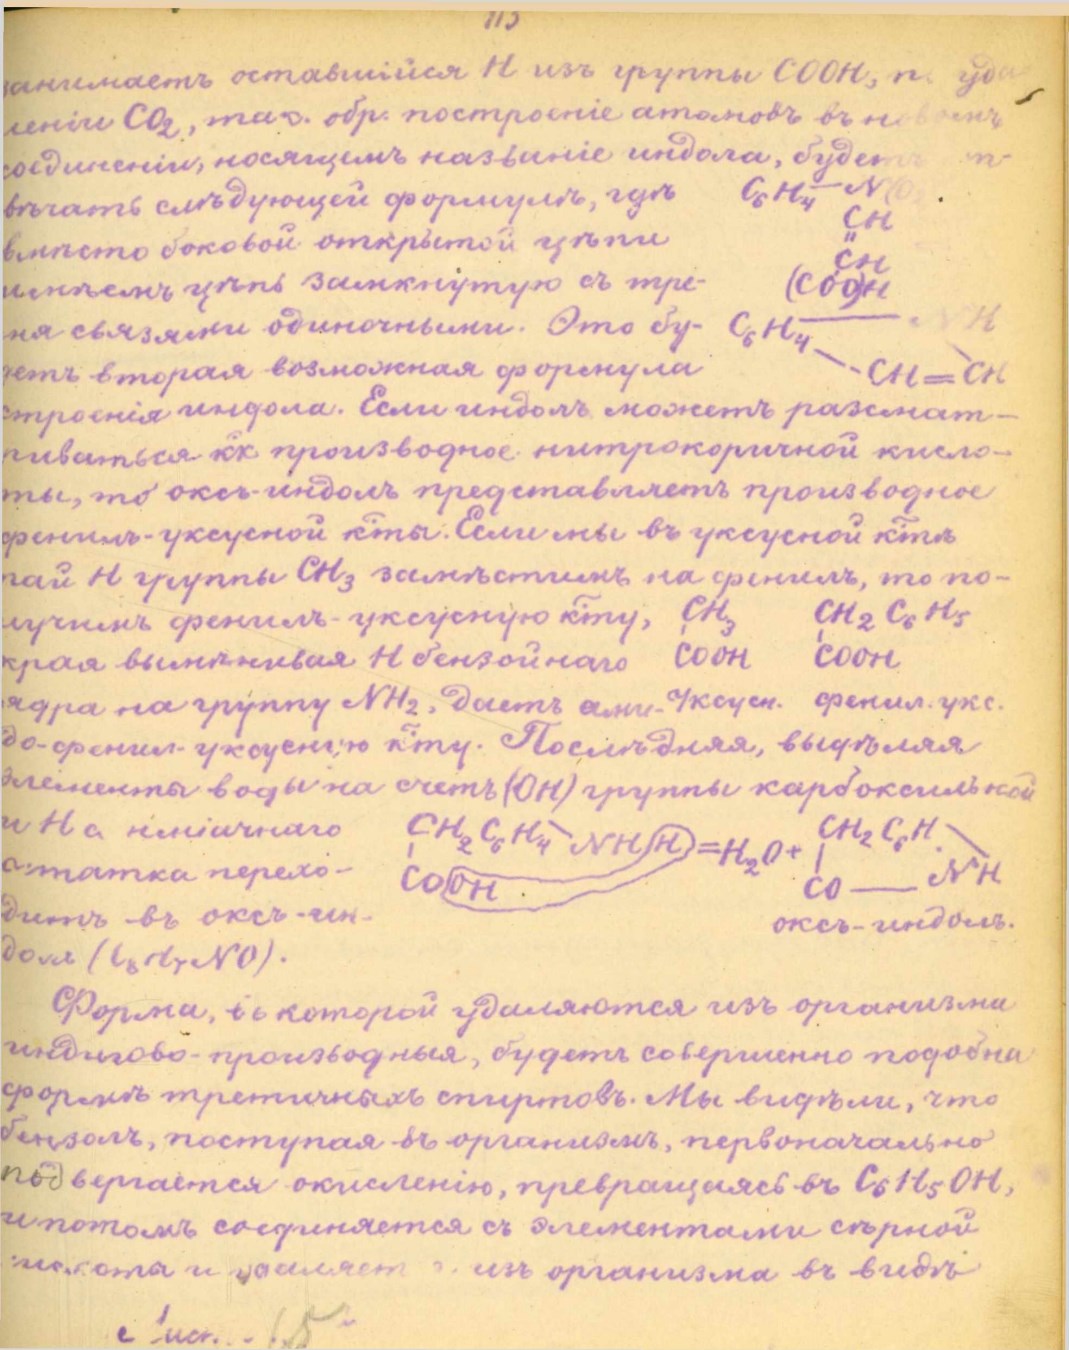 113
занимаетъ оставшійся H изъ группы COOH, п. уда
леніи CO2, так. обр. построеніе атомовъ въ новомъ
соединеніи, носящемъ названіе индола, будетъ
вѣчать слѣдующей формулѣ, гдѣ C6H4 — N(O
вмѣсто боковой открытой цѣпи CH
"
CH
имѣемъ цѣпь замкнутую съ тре- (COOH
мя связями одиночными. Это бу- C6H4 NH
детъ вторая возможная формула CH=CH
строенія индола. Если индолъ можетъ разсмат-
риваться кк производное нитрокоричной кисло-
ты, то оксъ-индолъ представляетъ производное
фенилъ-уксусной кты. Если мы въ уксусной ктѣ
пай H группы CH3 замѣстимъ на фенилъ, то по-
лучимъ фенилъ-уксусную кту, CH3 CH2 C6H5
края вымѣнивая H бензойнаго COOH COOH
ядра на группу NH2, даетъ ами- Уксусн. фенил. укс.
до-фенил-уксусную кту. Послѣдняя, выдѣляя
элементы воды на счетъ (OH) группы карбоксильной
и H амміачнаго CH2 C6H4 NHH =H2O+ CH2 C6H
остатка перехо- COOH CO — NH
дитъ въ оксъ-ин- оксъ-индолъ.
долъ (C8H7NO).
Форма, въ которой удаляются изъ организма
индигово-производныя, будетъ совершенно подобна
формѣ третичныхъ спиртовъ. Мы видѣли, что
бензолъ, поступая въ организмъ, первоначально
подвергается окисленію, превращаясь въ C6H5OH,
и потомъ соединяется съ элементами сѣрной
кислоты и удаляет изъ организма въ видѣ
15